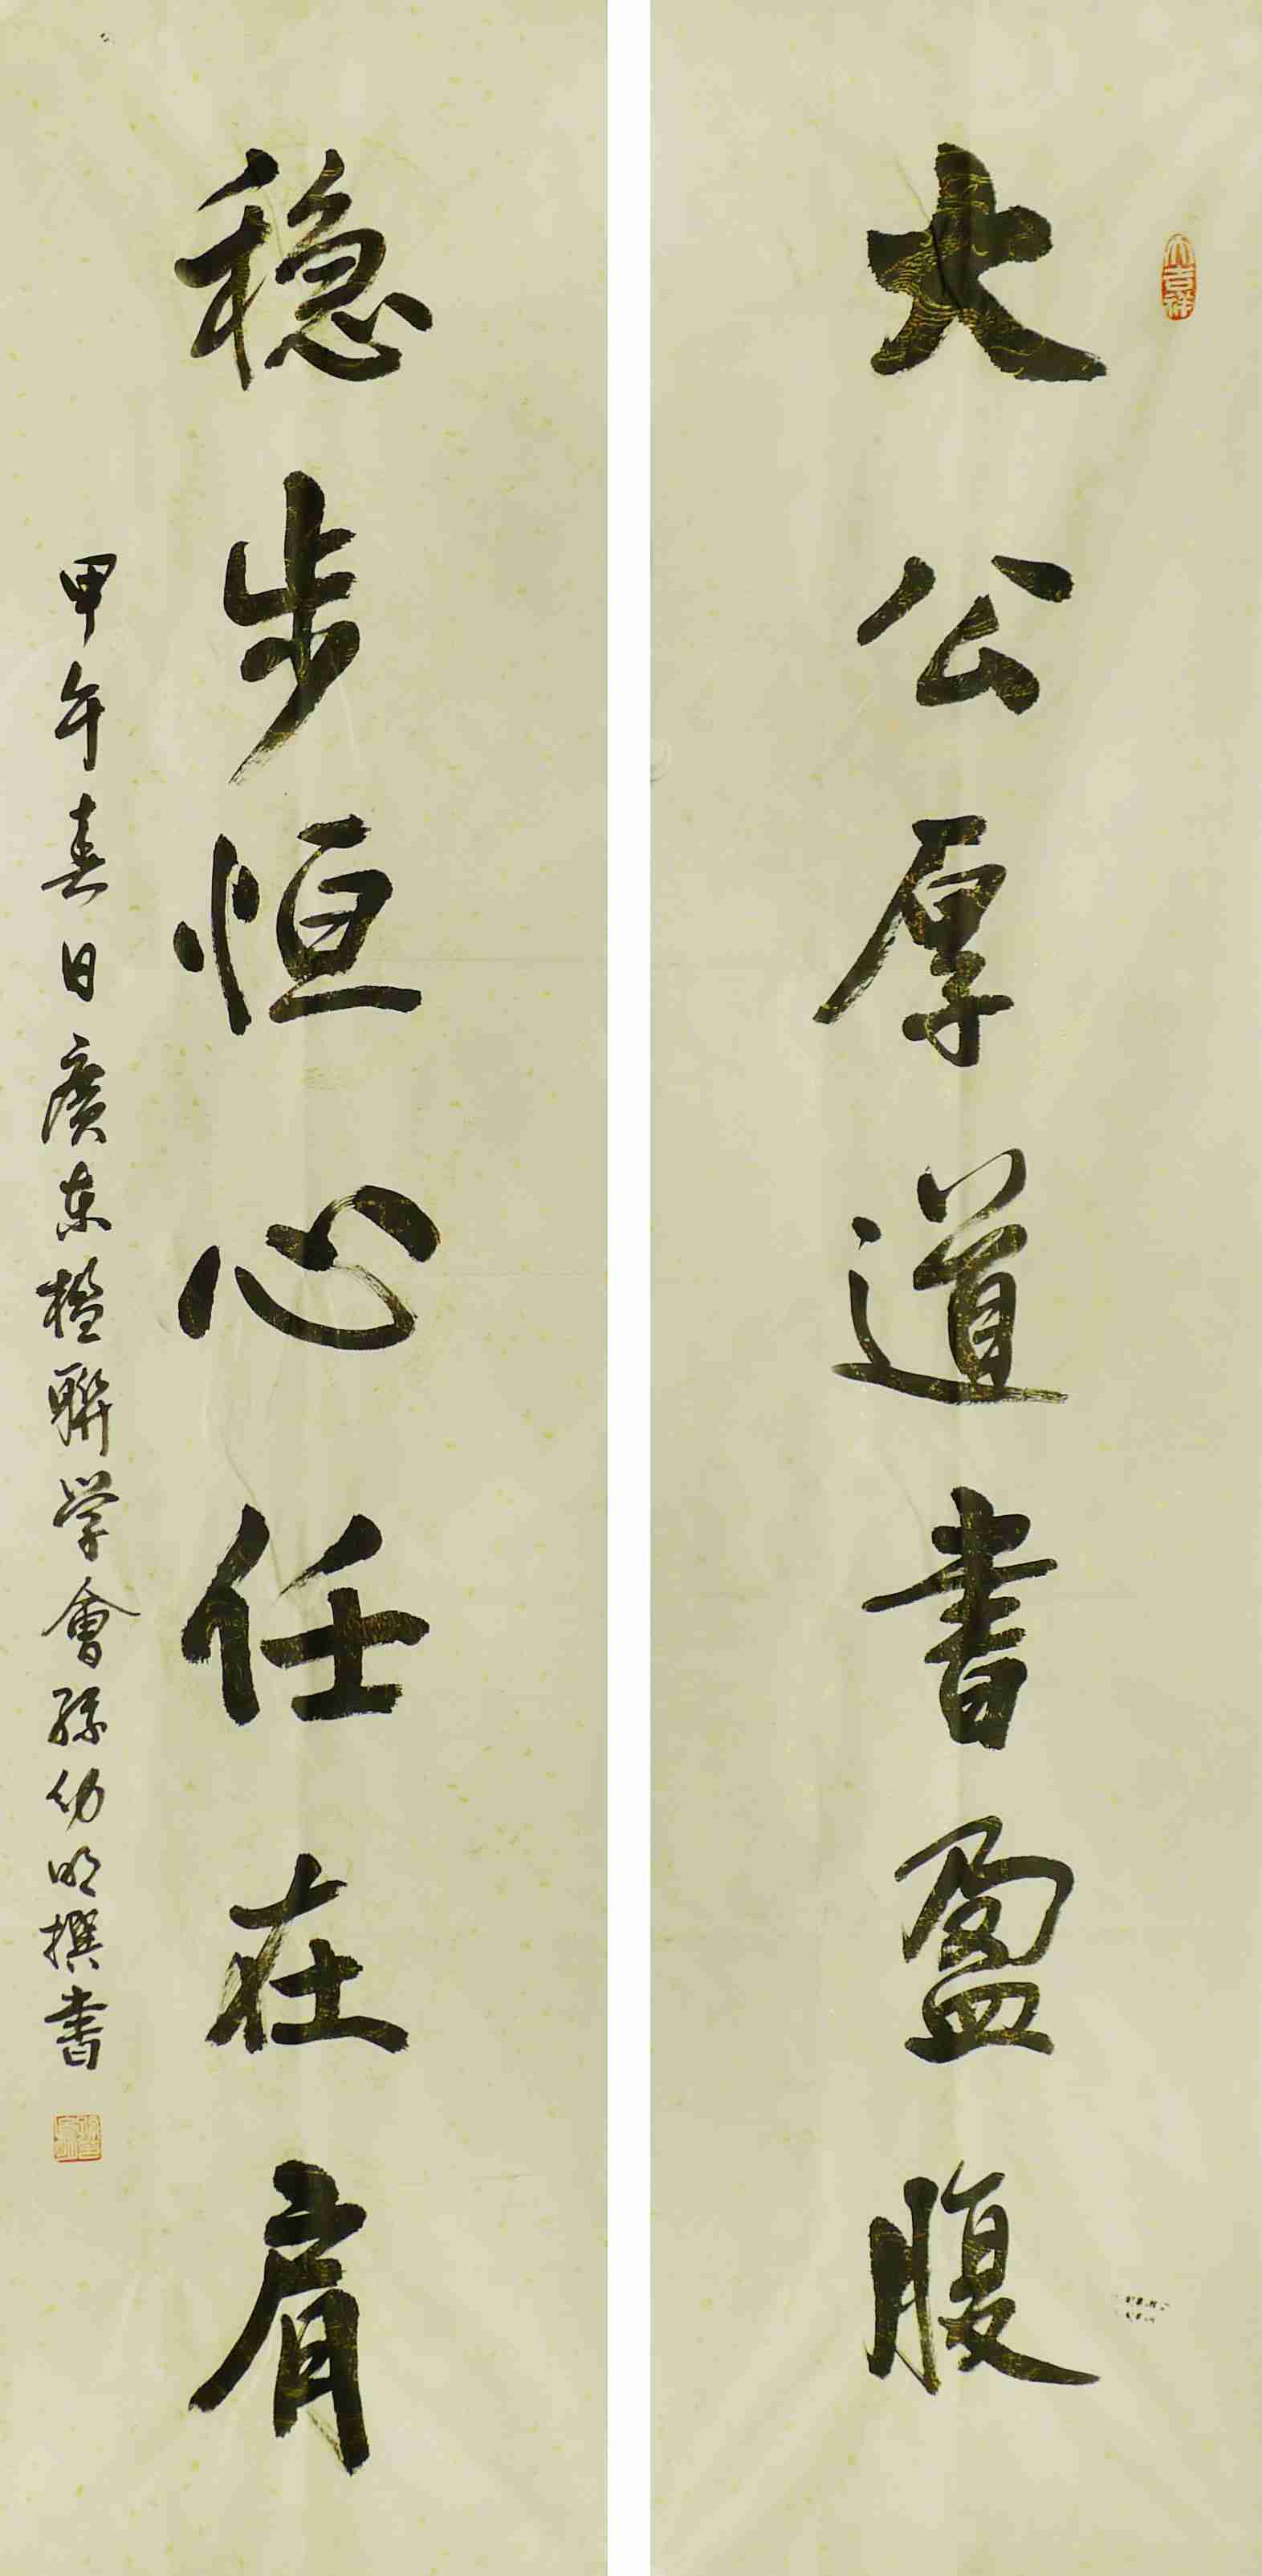 大公厚道書盈腹
大吉祥
稳步恒心任在肩
甲午春日廣东楹聯学會孫幼明撰書